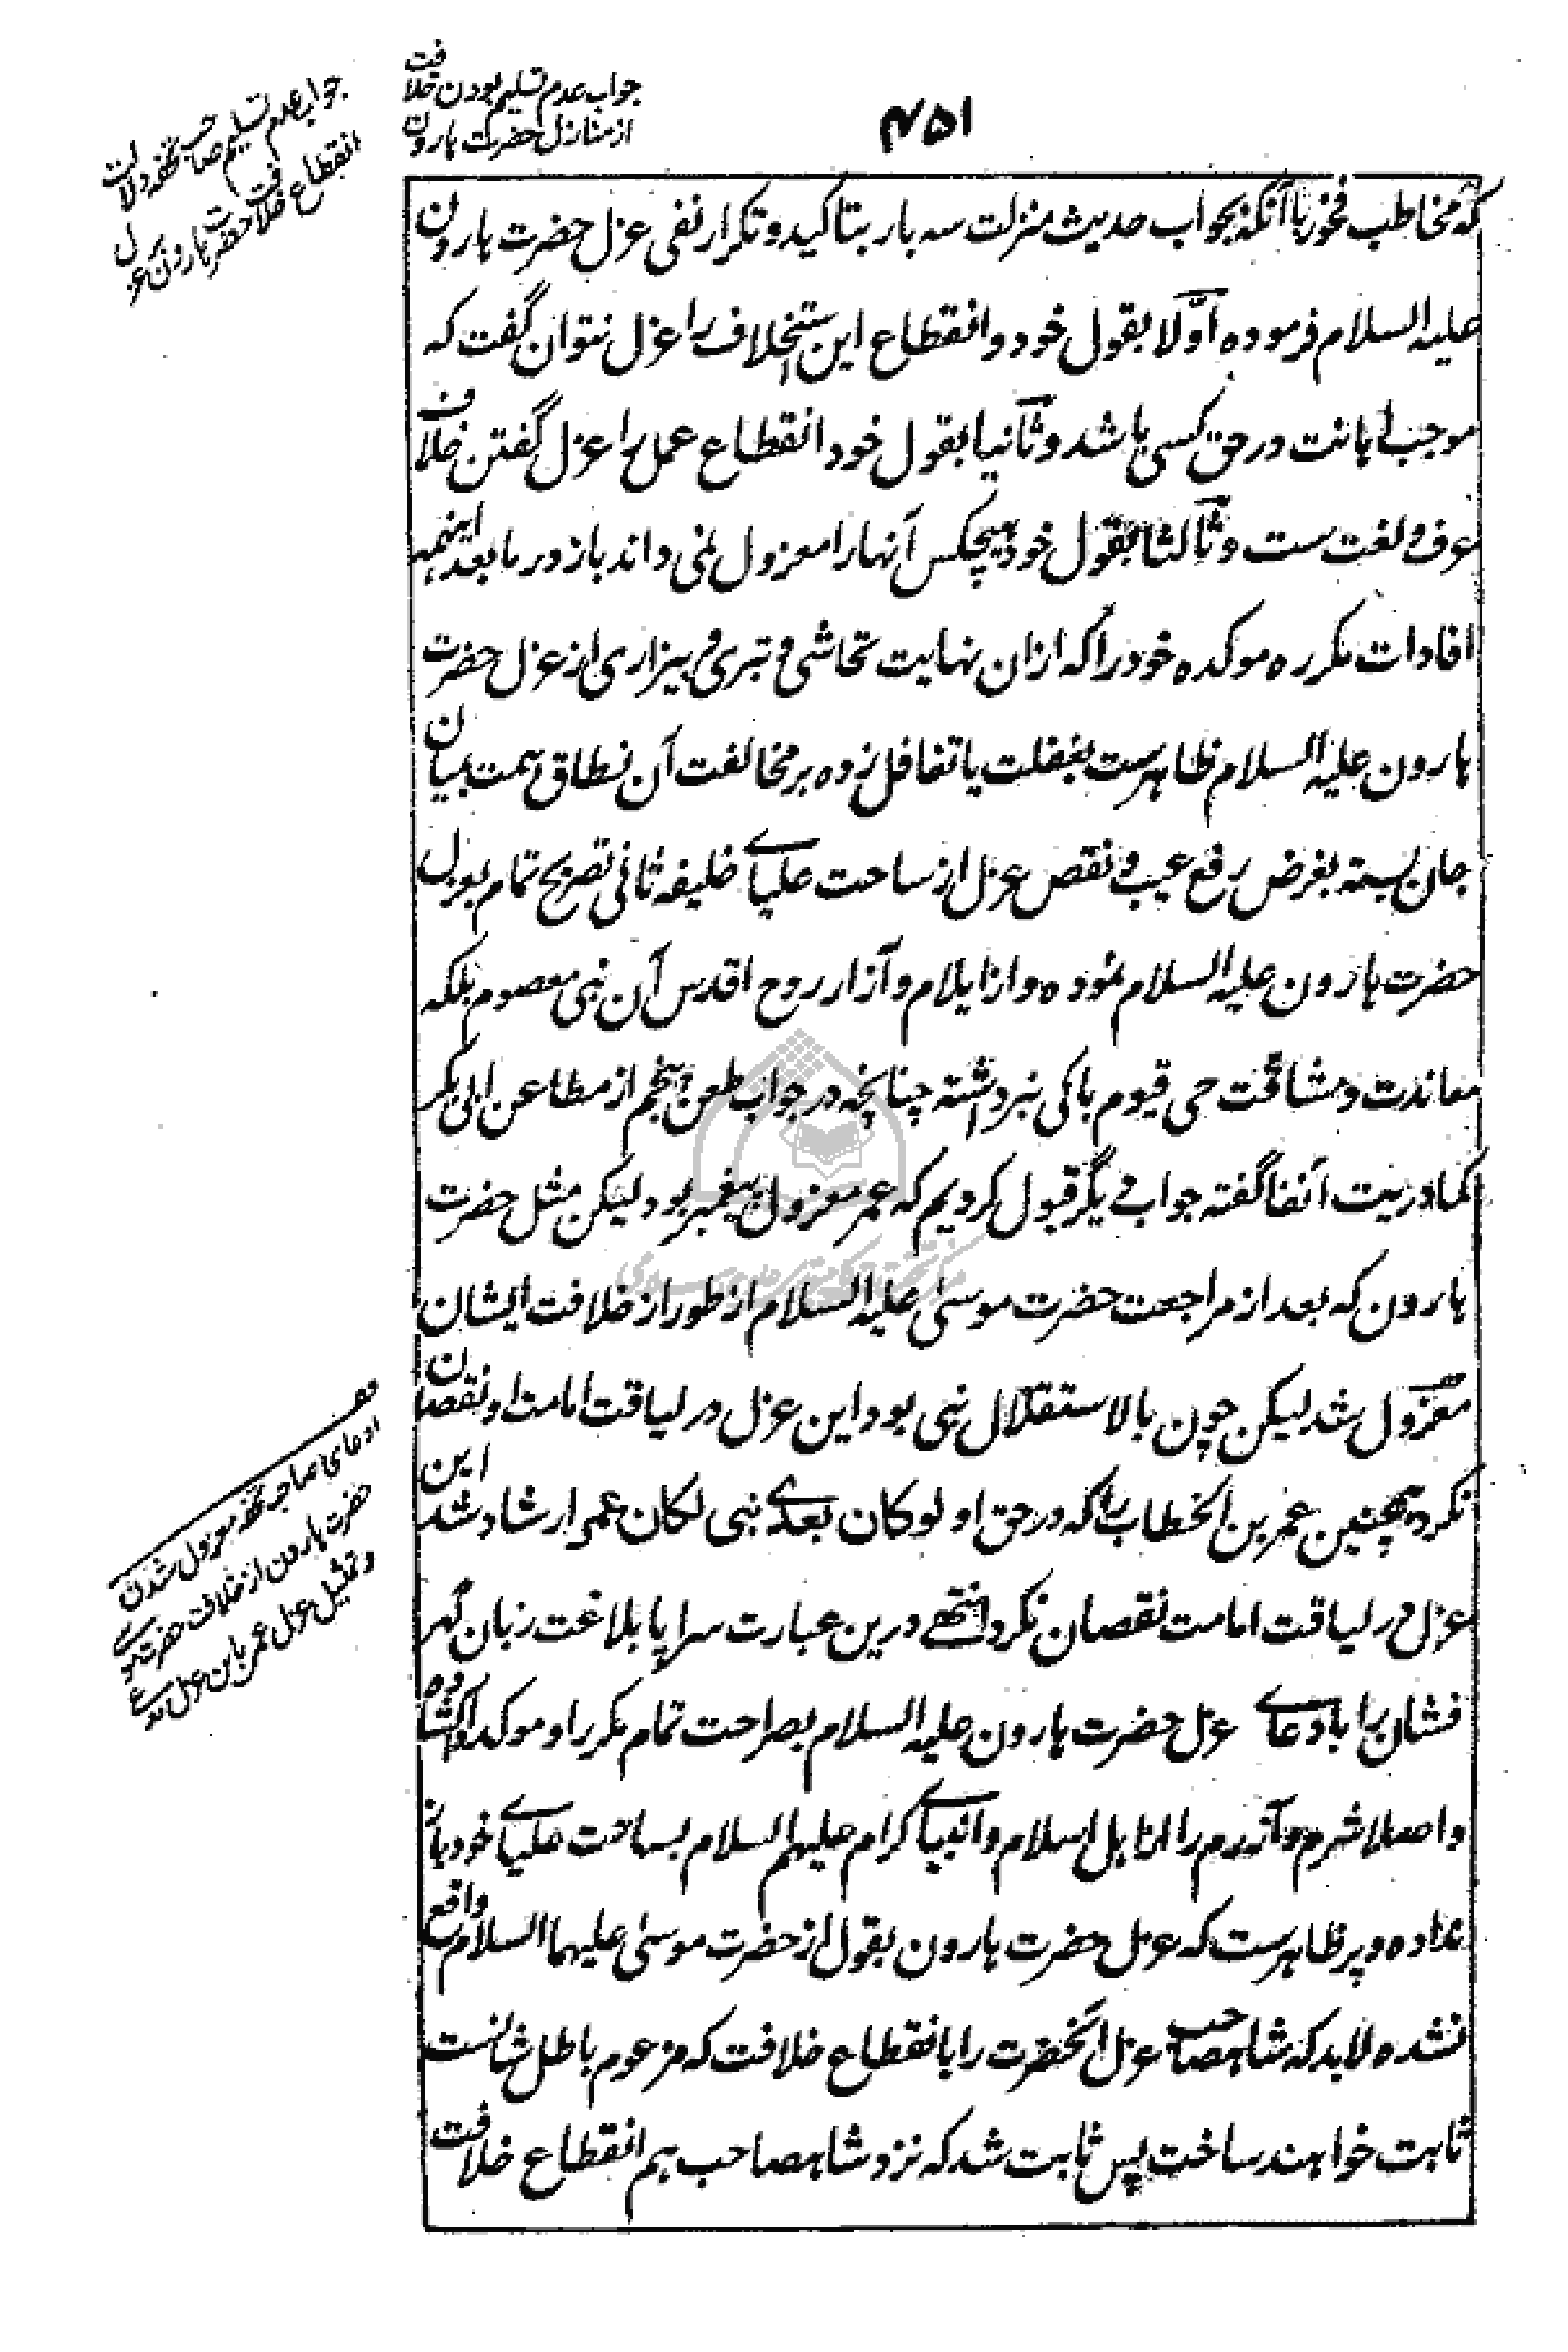 ۴۵۱
جواب عدم تسلیم بودن خلافت
از منازل حضرت هارون
جواب عدم تسلیم صاحب تحفه دلالت
انقطاع خلافت حضرت هارون بر عزل
که مخاطب فخور با آنکه بجواب حدیث منزلت سه بار بتاکید و تکرار نفی عزل حضرت هارون
علیه السلام فرموده اوّلا بقول خود و انقطاع این استخلاف را عزل نتوان گفت که
موجب اهانت در حق کسی باشد و ثانیا بقول خود انقطاع عمل را عزل گفتن خلاف
عرف و لغت ست و ثالثا بقول خود هیچکس آنها را معزول نمی داند باز در ما بعد اینهمه
افادات مکرره موکده خود را که ازان نهایت تحاشی و تبری و بیزاری از عزل حضرت
هارون علیه السلام ظاهرست بغفلت یا تغافل زده بر مخالفت آن نطاق همت بمیان
جان بسته بغرض رفع عیب و نقص عزل از ساحت علیای خلیفه ثانی تصریح تمام بعزل
حضرت هارون علیه السلام نموده و از ایلام و آزار روح اقدس آن نبی معصوم بلکه
معاندت و مشاقت حی قیوم باکی نبرداشته چنانچه در جواب طعن پنجم از مطاعن ابی بکر
کما دریت آنفا گفته جواب دیگر قبول کردیم که عمر معزول پیغمبر بود لیکن مثل حضرت
هارون که بعد از مراجعت حضرت موسیٰ علیه السلام از طور از خلافت ایشان
معزول شد لیکن چون بالاستقلال نبی بود این عزل در لیاقت امامت او نقصان
نکرد همچنین عمر بن الخطاب را که در حق او لو کان بعدی نبی لکان عمر ارشاد شد این
عزل در لیاقت امامت نقصان نکرد انتهی درین عبارت سراپا بلاغت زبان گهر
فشان را بادعای عزل حضرت هارون علیه السلام بصراحت تمام مکررا و موکدا گشاده
و اصلا شرم و آزرم را از اهل اسلام و انبیای کرام علیهم السلام بساحت علیای خود بار
نداده و پر ظاهرست که عزل حضرت هارون بقول از حضرت موسیٰ علیهما السلام واقع
نشده لابد که شاهصاحب عزل آنحضرت را بانقطاع خلافت که مزعوم باطل شانست
ثابت خواهند ساخت پس ثابت شد که نزد شاهصاحب هم انقطاع خلافت
ادعای صاحب تحفه معزول شدن
حضرت هارون از خلافت حضرت موسی
و تمثیل عزل عمر باین عزل